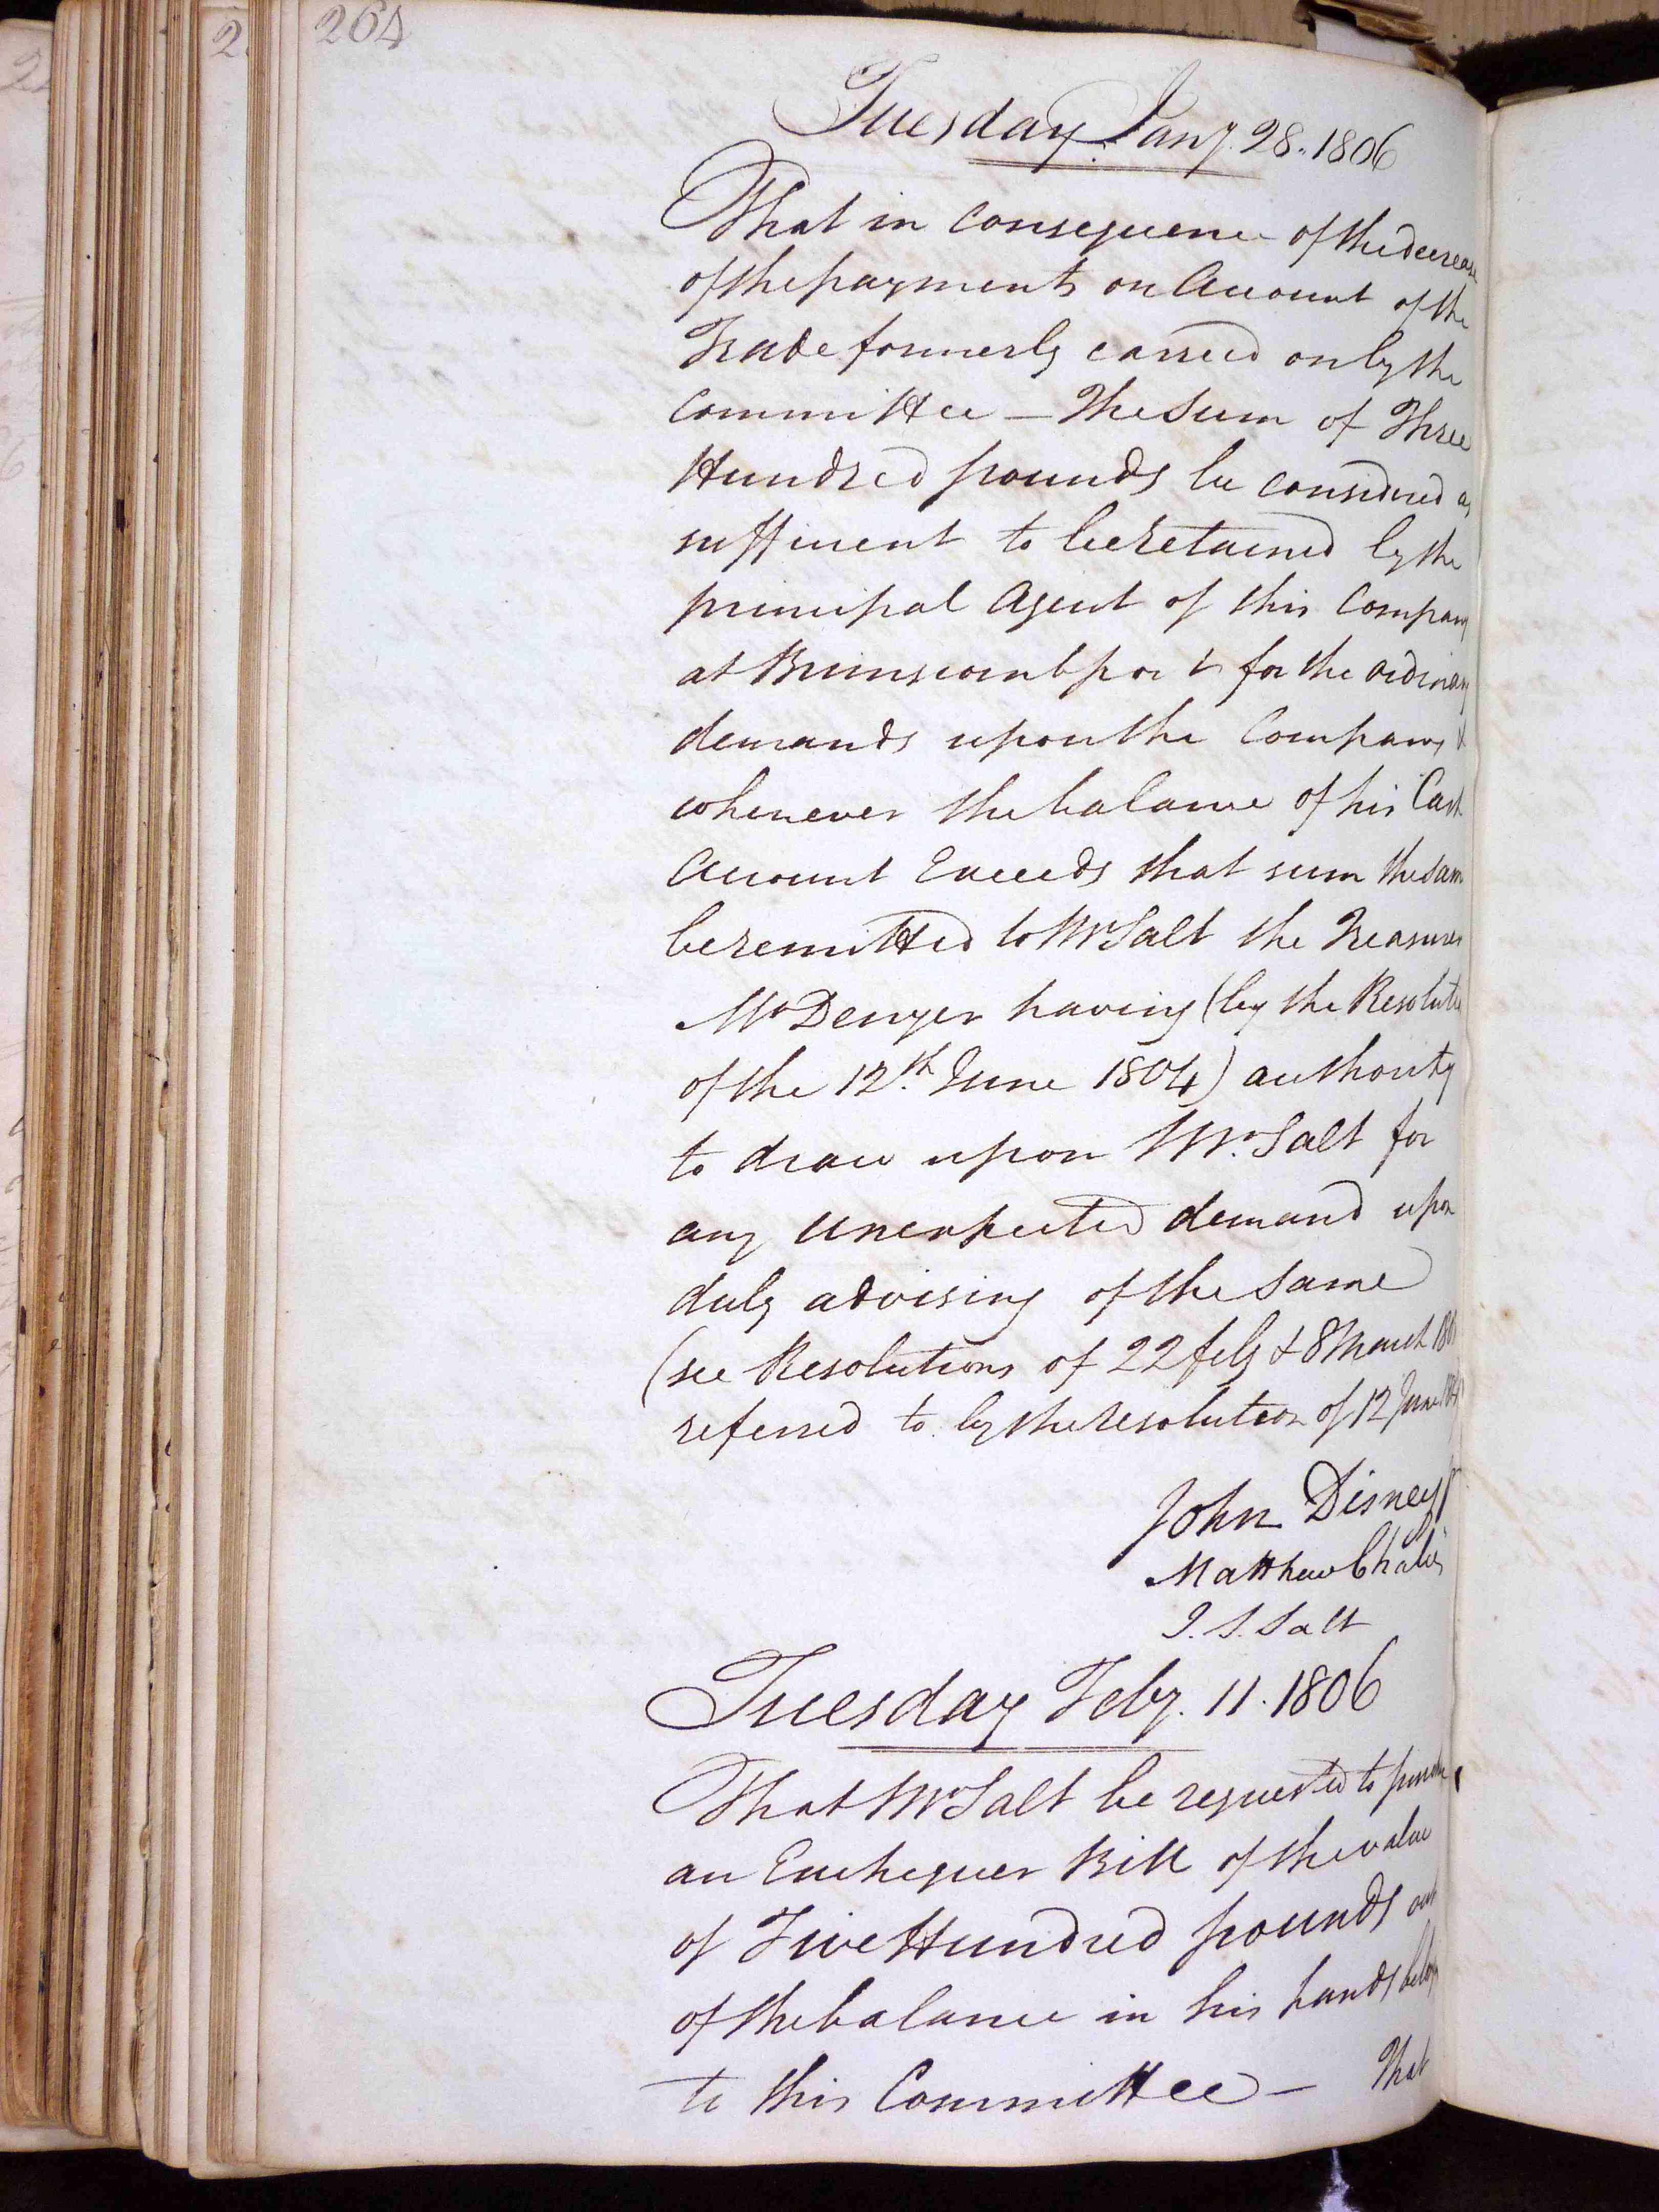 264
Tuesday Jany. 28. 1806
That in consequence of the decrease
of the payments on Account of the
Trade formerly carried on by the
Committee — The Sum of Three
Hundred pounds be considered as
sufficient to be retained by the
principal Agent of this Company
at Brimscomb port for the ordinary
demands upon the Company &
whenever the balance of his Cash
Account Exceeds that sum the same
be remitted to Mr Salt the Treasurer
Mr Denyer having (by the Resolution
of the 12th June 1804) authority
to draw upon Mr. Salt for
any unexpected demand upon
duly advising of the same
(see Resolutions of 22 feby & 8 March
referred to by the resolution of 12 June
John Disney
Matthew
J. S. Salt
Tuesday Feby. 11. 1806
That Mr Salt be requested to purchase
an Exchequer Bill of the value
of Five Hundred pounds out
of the balance in his hands
to this Committee — That